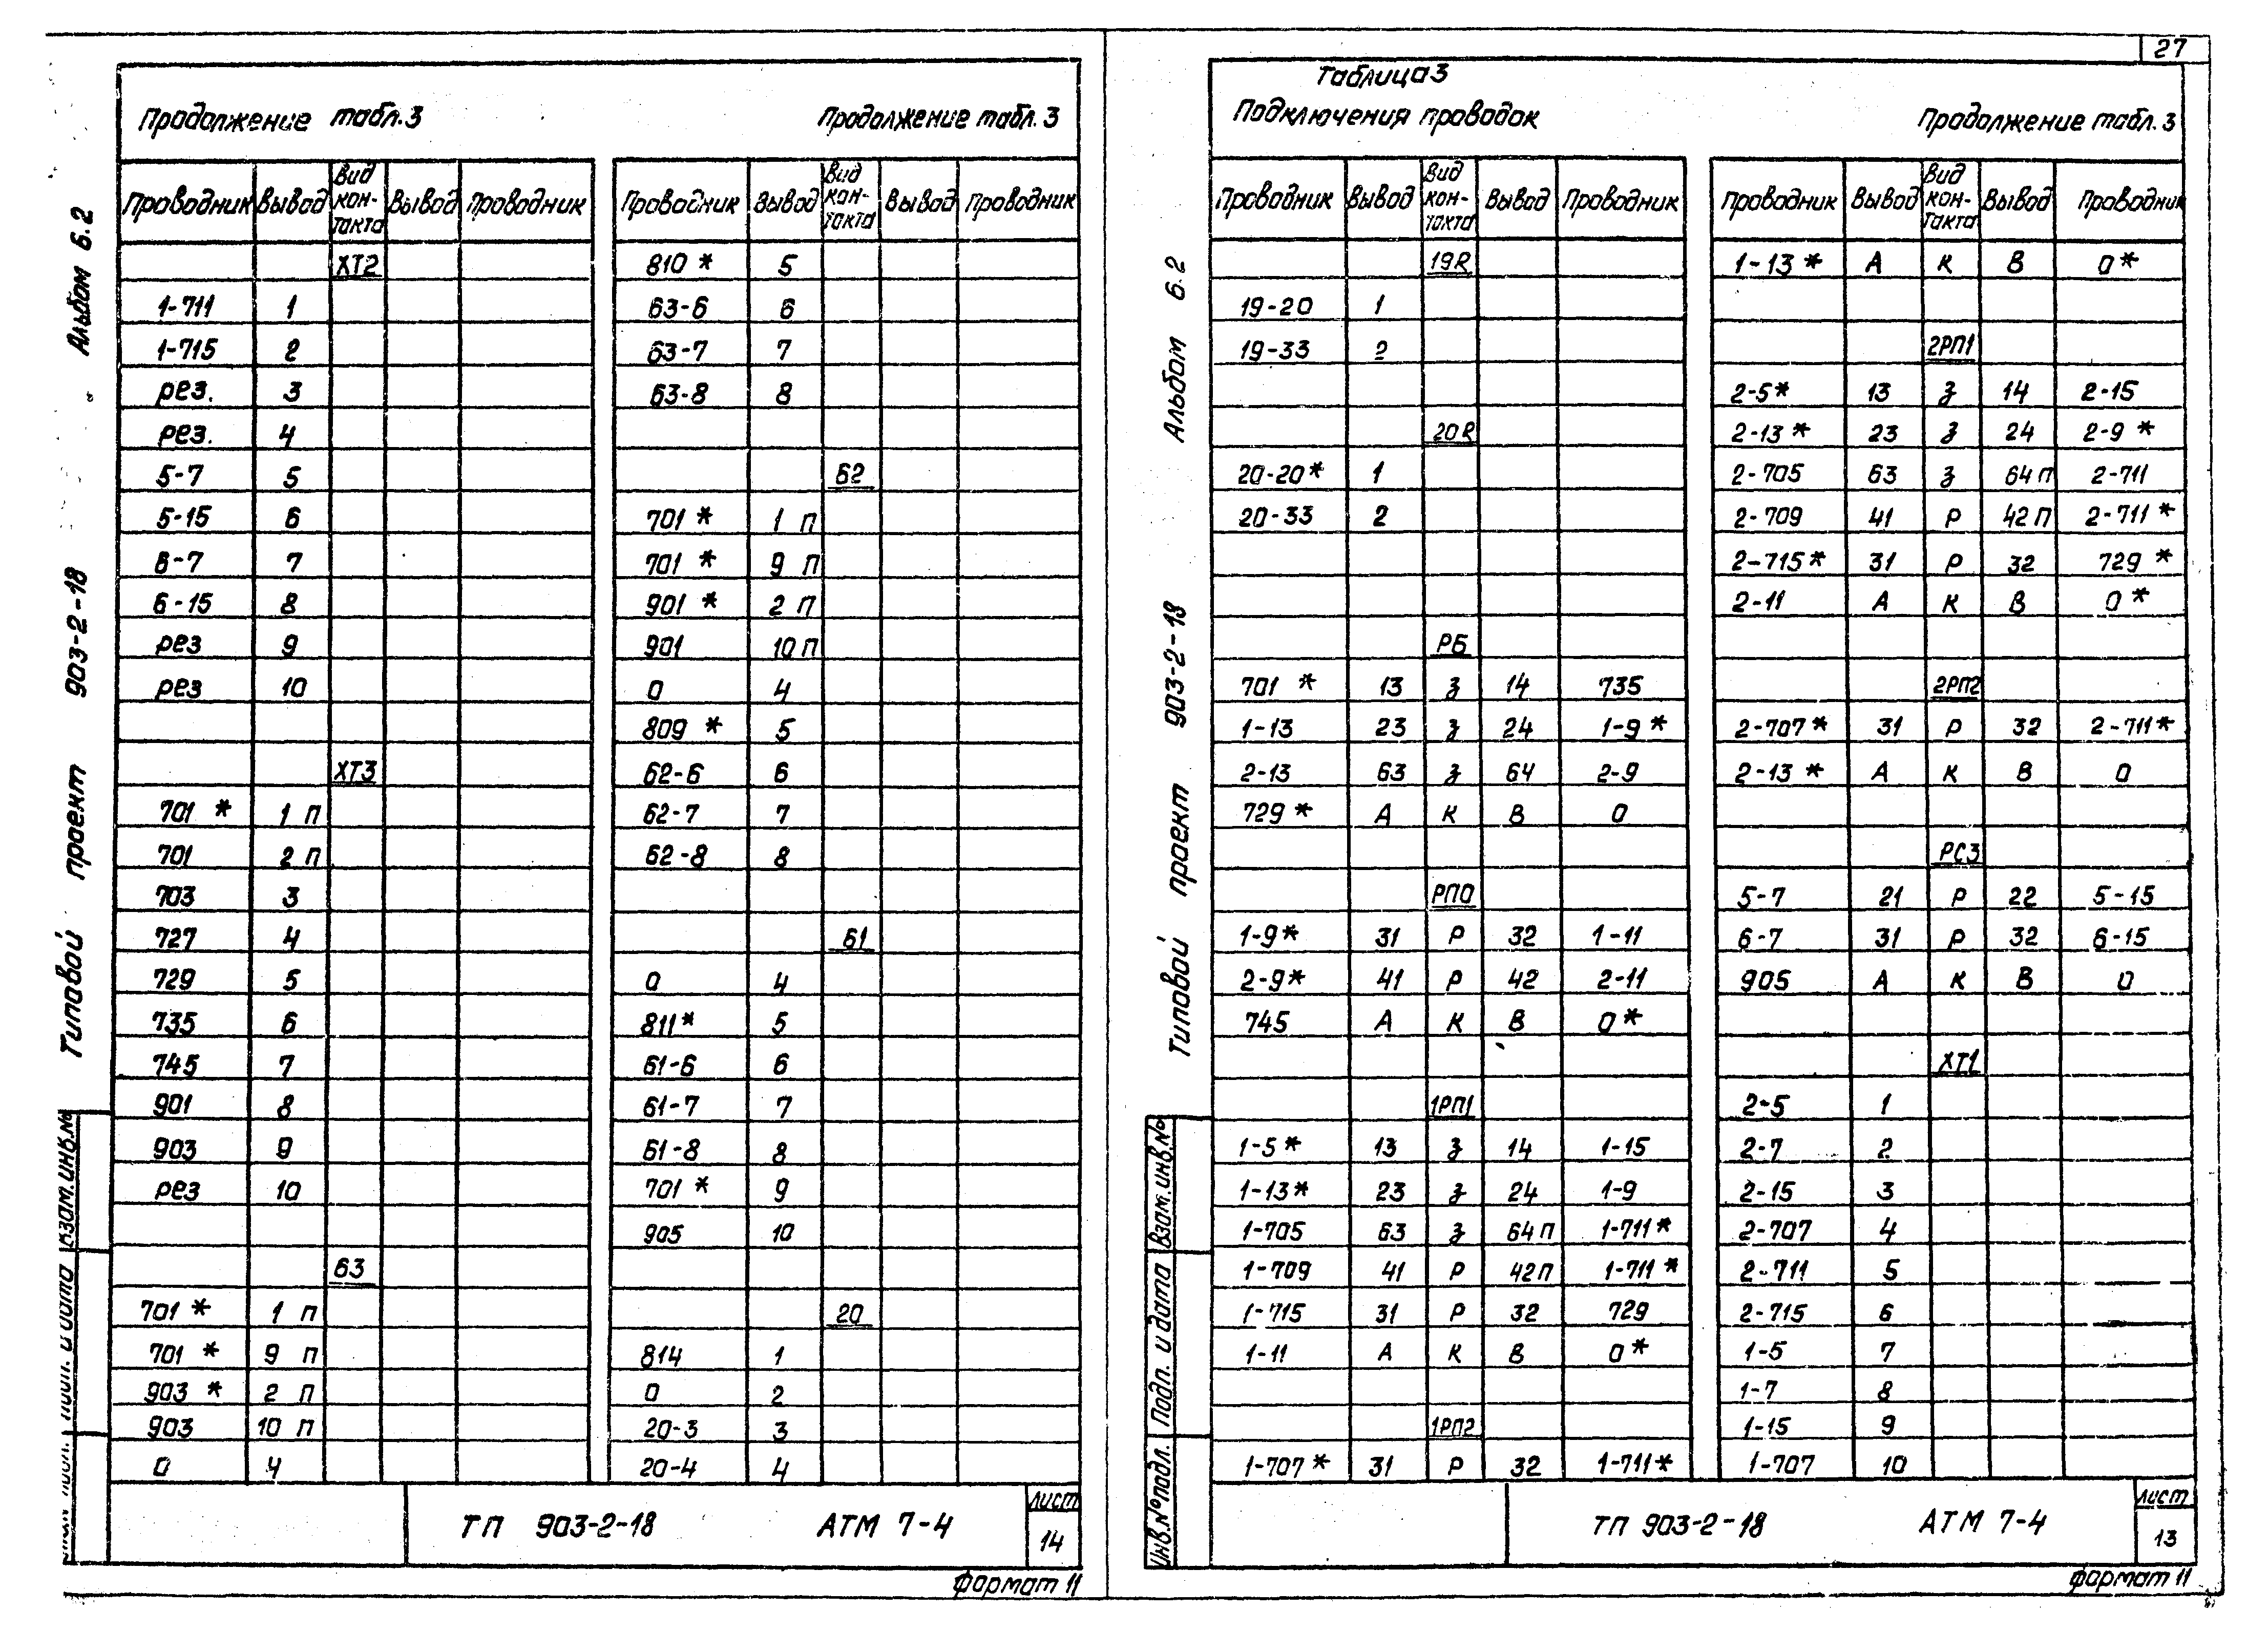 27
Альбом 6.2
Типовой проект 903-2-18
Продолжение табл.3
Проводник Вывод Вид кон-такта Вывод Проводник
ХТ2
1-711 1
1-715 2
рез. 3
рез. 4
5-7 5
5-15 6
6-7 7
6-15 8
рез 9
рез 10
ХТ3
701 * 1 П
701 2 П
703 3
727 4
729 5
735 6
745 7
901 8
903 9
рез 10
63
701 * 1 П
701 * 9 П
903 * 2 П
903 10 П
0 4
Продолжение табл.3
Проводник Вывод Вид кон-такта Вывод Проводник
810 * 5
63-6 6
63-7 7
63-8 8
62
701 * 1 П
701 * 9 П
901 * 2 П
901 10 П
0 4
809 * 5
62-6 6
62-7 7
62-8 8
61
0 4
811* 5
61-6 6
61-7 7
61-8 8
701 * 9
905 10
20
814 1
0 2
20-3 3
20-4 4
Взам.инв.№
ТП 903-2-18 АТМ 7-4
Лист
14
Формат 11
Альбом 6.2
Типовой проект 903-2-18
Таблица3
Подключения проводок
Проводник Вывод Вид кон-такта Вывод Проводник
19R
19-20 1
19-33 2
20R
20-20* 1
20-33 2
РБ
701 * 13 З 14 735
1-13 23 З 24 1-9 *
2-13 63 З 64 2-9
729 * А К В 0
РП0
1-9* 31 Р 32 1-11
2-9* 41 Р 42 2-11
745 А К В 0*
1РП1
1-5* 13 З 14 1-15
1-13* 23 З 24 1-9
1-705 63 З 64 П 1-711*
1-709 41 Р 42П 1-711 *
1-715 31 Р 32 729
1-11 А К В 0*
1РП2
1-707 * 31 Р 32 1-711*
Продолжение табл.3
Проводник Вывод Вид кон-такта Вывод Проводник
1-13 * А К В 0*
2РП1
2-5* 13 З 14 2-15
2-13 * 23 З 24 2-9 *
2-705 63 З 64 П 2-711
2-709 41 Р 42 П 2-711 *
2-715* 31 Р 32 729 *
2-11 А К В 0 *
2РП2
2-707* 31 Р 32 2-711*
2-13 * А К В 0
РС3
5-7 21 Р 22 5-15
6-7 31 Р 32 6-15
905 А К В 0
ХТ1
2-5 1
2-7 2
2-15 3
2-707 4
2-711 5
2-715 6
1-5 7
1-7 8
1-15 9
1-707 10
Взам.инв.№
Подп. и дата
Инв.№подл.
ТП 903-2-18 АТМ 7-4
Лист
13
Формат 11